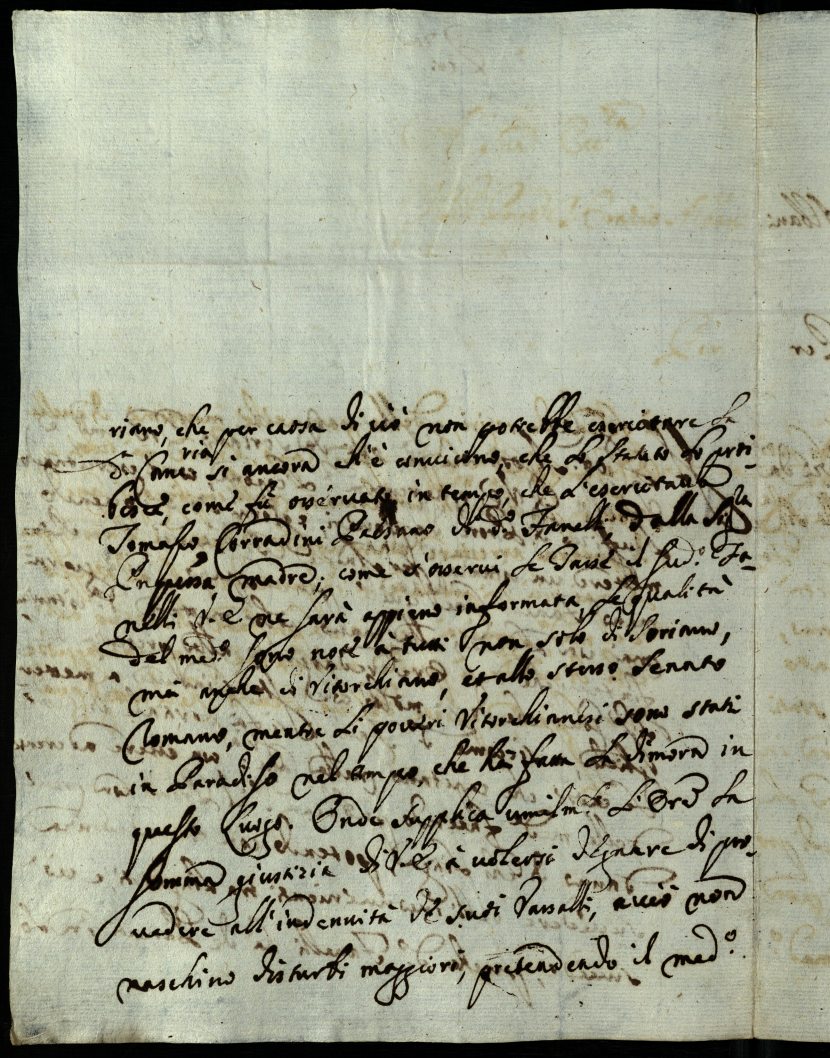 riano, che per causa di ciò non potrebbe esercitare la
d.a Canc.ria si ancora ch'è convicino, che lo statuto lo proi-
bisce, come fù osservato in tempo, che l'esercitava
Tomasso Corradini d.o Fanelli, dalla Sig.ra
Principessa madre; come s'osservi, se Tarsè il sud.o Fa-
nelli V.E. ne sarà appieno informata, le qualità
del med.o sono note à tutti non solo di Soriano,
mà anche di Vitorchiano, et allo stesso Senato
Romano, mentre li poveri Vitorchianesi sono stati
in Paradiso nel tempo, che hà fatta la dimora in
questo luogo. Onde supplica umilm.te l'Ore la
somma giustizia di V.E. à volersi degnare di pro-
vedere all'indennità de suoi Vassalli, acciò non
naschino disturbi maggiori, pretendendo il med.o